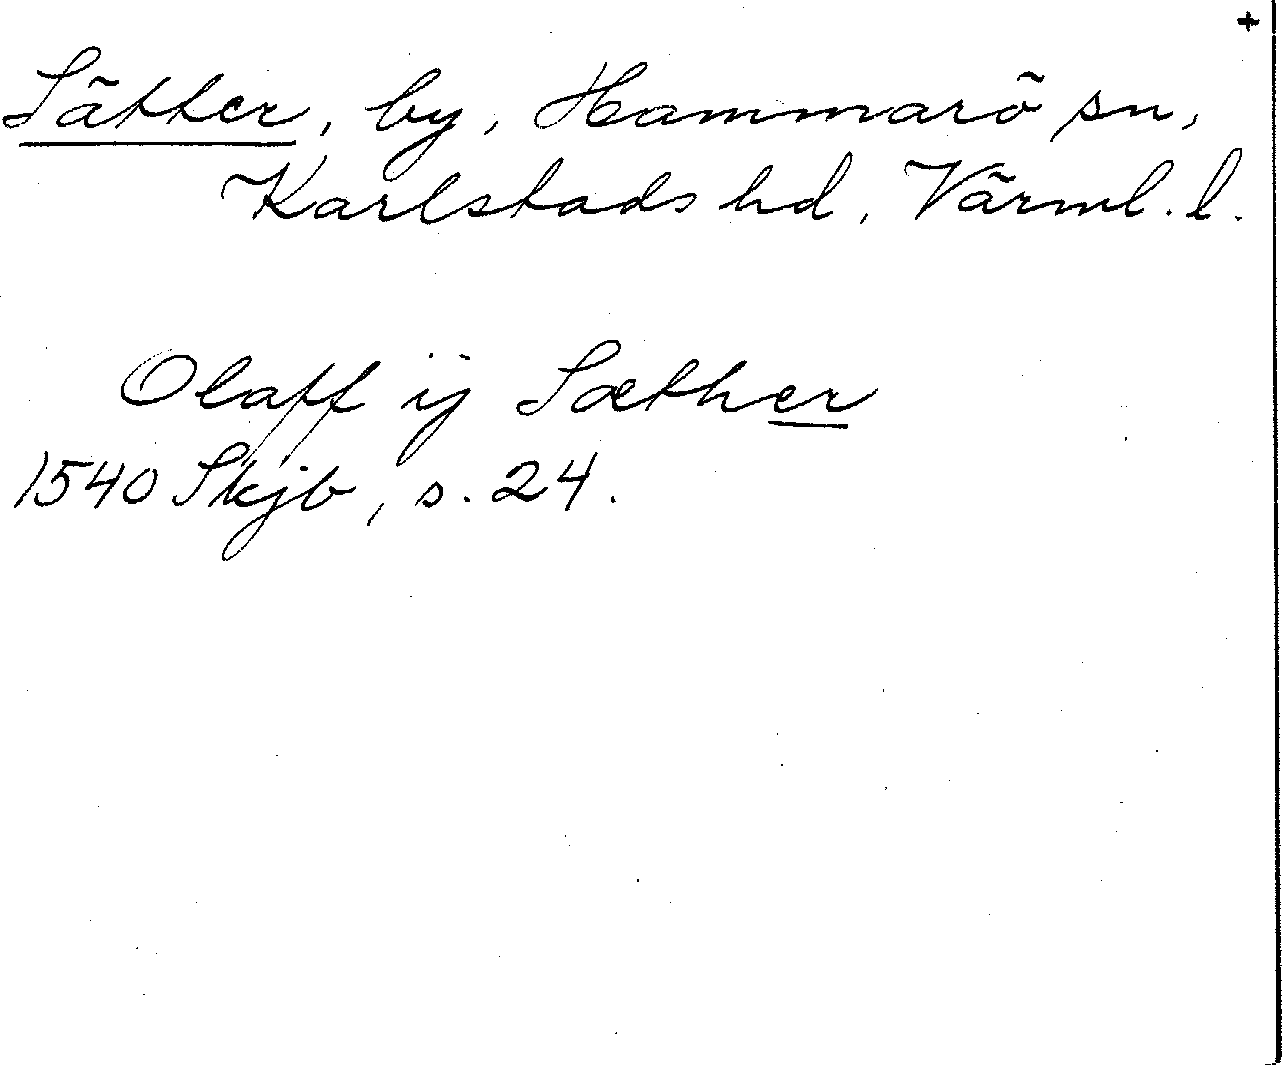 +
Sätter, by, Hammarö sn,
Karlstads hd, Värml. l.
Olaff ij Sæther
1540 Skjb, s. 24.